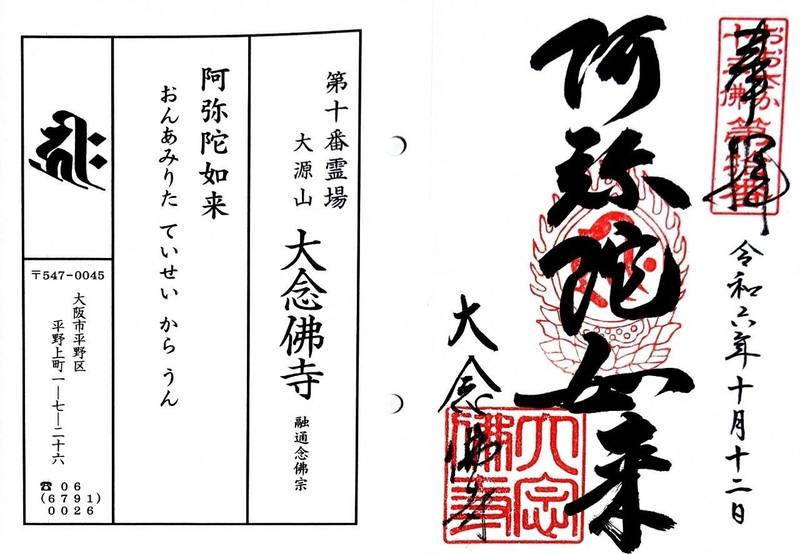 奉拝
おおさか
十三佛
第拾番
令和六年十月十二日
阿弥陀如来
大念佛寺
大念
佛寺
第十番霊場
大源山 大念佛寺 融通念佛宗
阿弥陀如来
おんあみりた ていせい から うん
〒547-0045
大阪市平野区
平野上町一―七―二十六
☎06
(6791)
0026